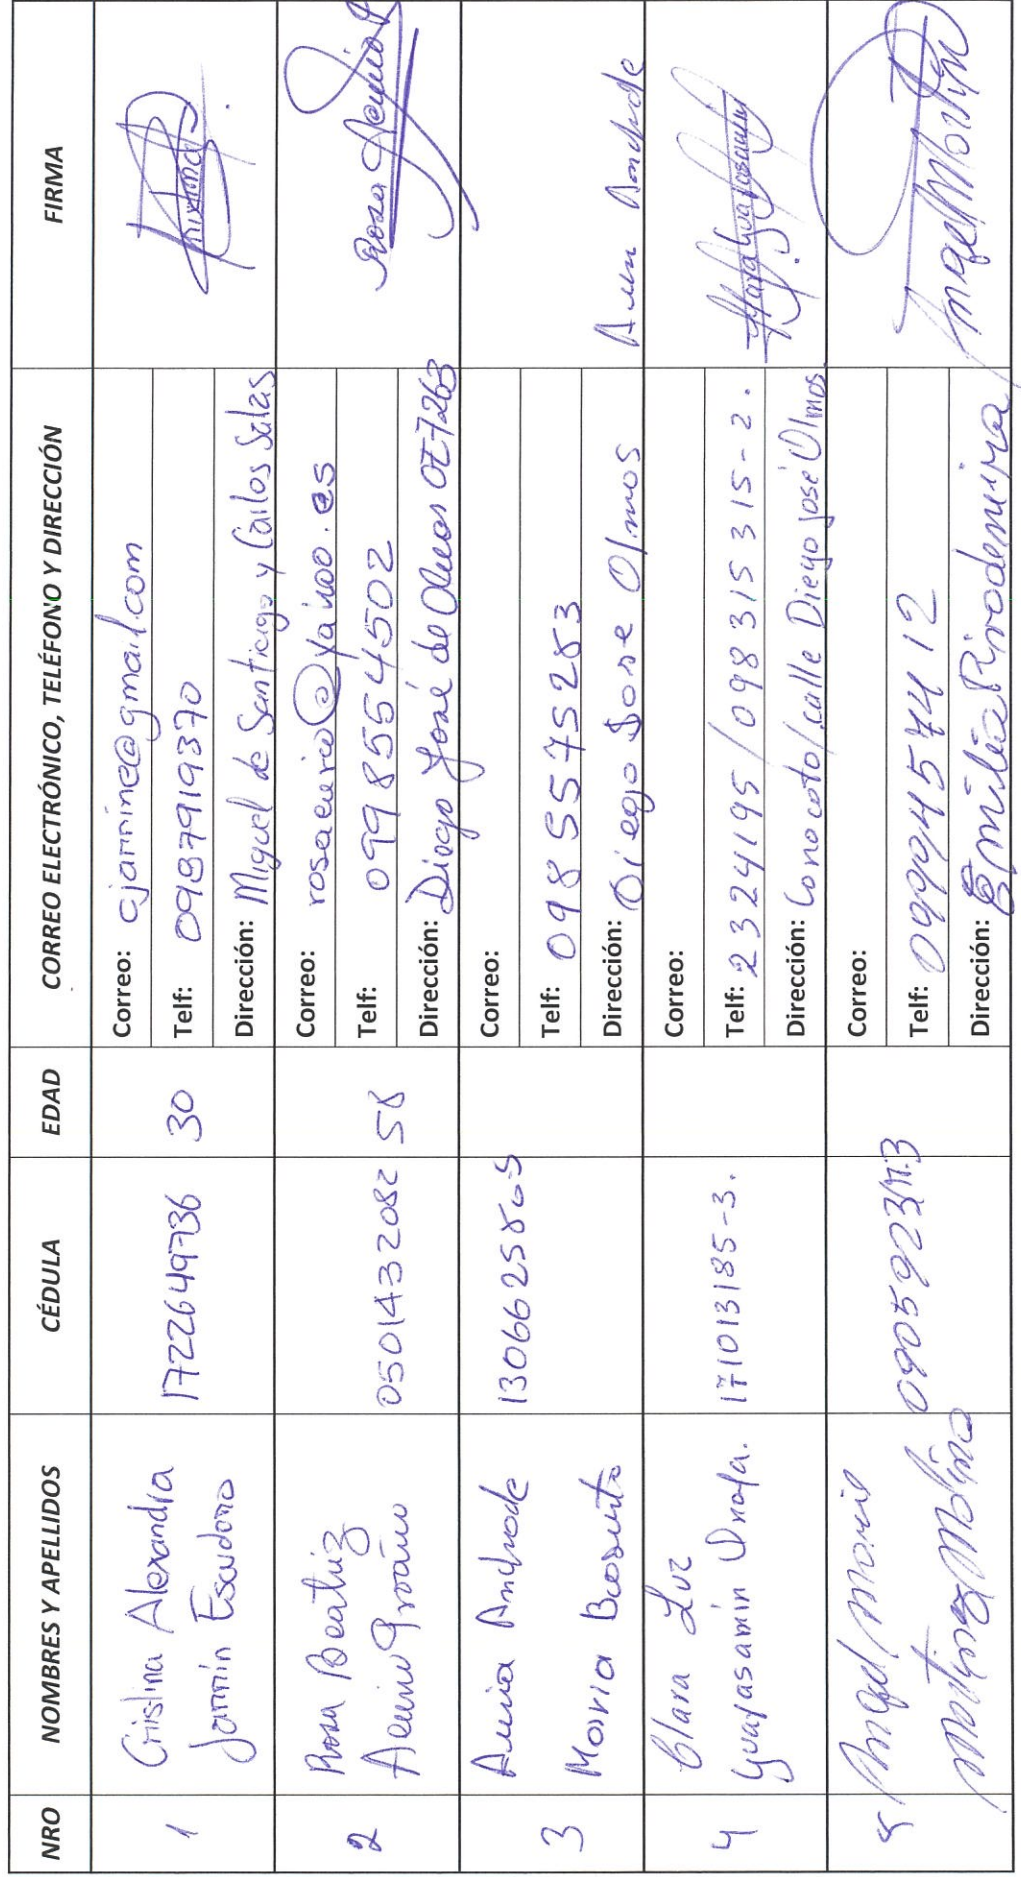 NRO NOMBRES Y APELLIDOS CÉDULA EDAD CORREO ELECTRÓNICO, TELÉFONO Y DIRECCIÓN FIRMA
1 Cristina Alexandra Jarrín Escudero 1722649736 30
Correo: cjarrine@gmail.com
Telf: 0987919370
Dirección: Miguel de Santiago y Carlos Salas
2 Rosa Beatriz 0501432082 58
Correo:
Telf: 0998554502
Dirección: Diego José de Olmos OE7263
Rosa
3 Andrade María
Correo:
Telf: 0985575283
Dirección: Diego Jose Olmos
4 Clara Luz Guayasamín Oñafa. 171013185-3.
Correo:
Telf: 2324195/098315315-2.
Dirección: Conocoto/calle Diego José Olmos.
Angel Martínez Molina
Correo:
Telf:
Dirección: Emilia Rivadeneira
Angel